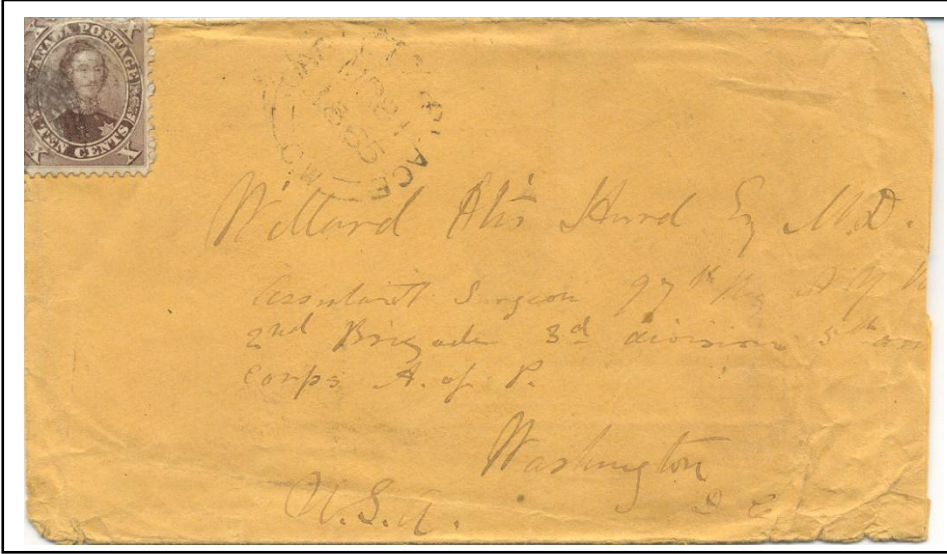 CANADA POSTAGE
TEN CENTS
X X X
Willard Otis Hurd Esq M.D.
Assistant Surgeon 97th N Y
2nd Brigade 3d division 5th
Corps A. of P.
Washington
D C
U.S.A.